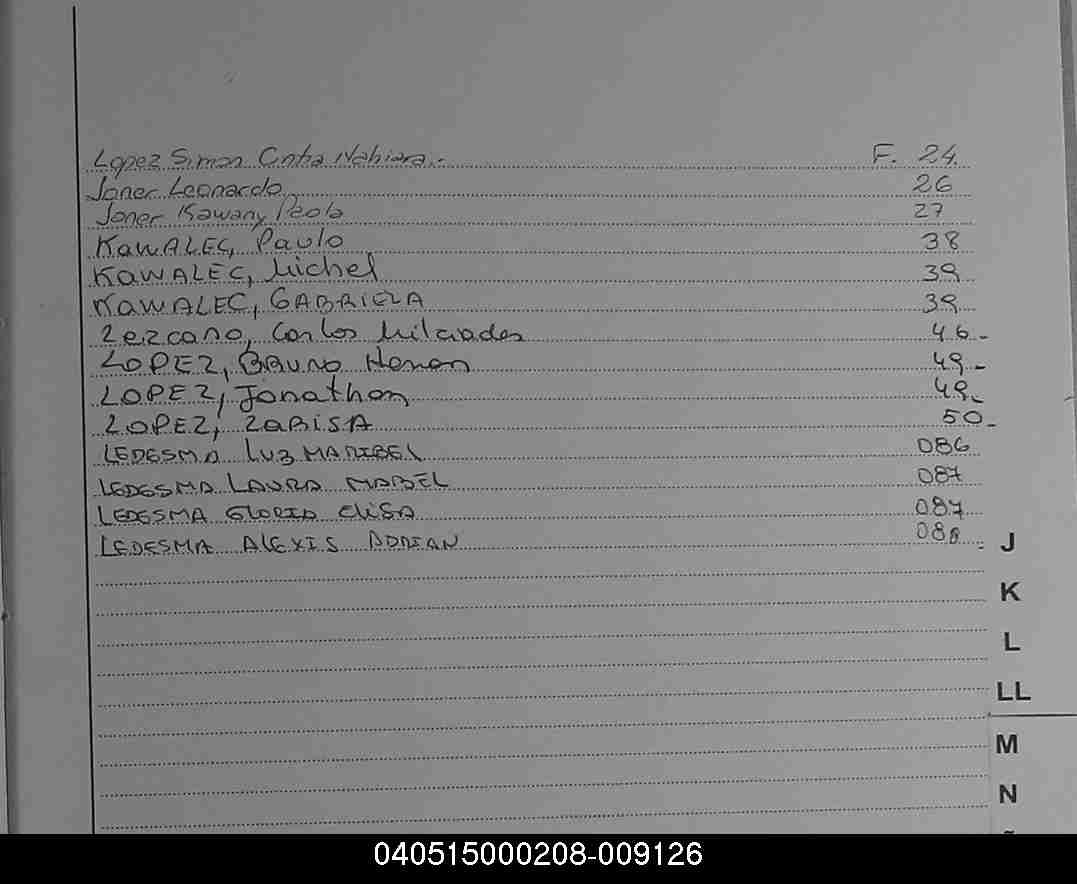 Lopez Simon Cntia Nahiara.- F. 24.
Joner Leonardo 26
Joner Kawany Paola 27
KAWALEC, Paulo 38
KAWALEC, Michel 39
KAWALEC, GABRIELA 39
Lezcano, Carlos Milciades 46-
LOPEZ, BRUNO Hernan 49-
LOPEZ, Jonathan 49-
LOPEZ, LARISA 50-
LEDESMA LUZ MARIBEL 086
LEDESMA LAURA MABEL 087
LEDESMA GLORIA ELISA 087
LEDESMA ALEXIS ADRIAN 088
J
K
L
LL
M
N
040515000208-009126